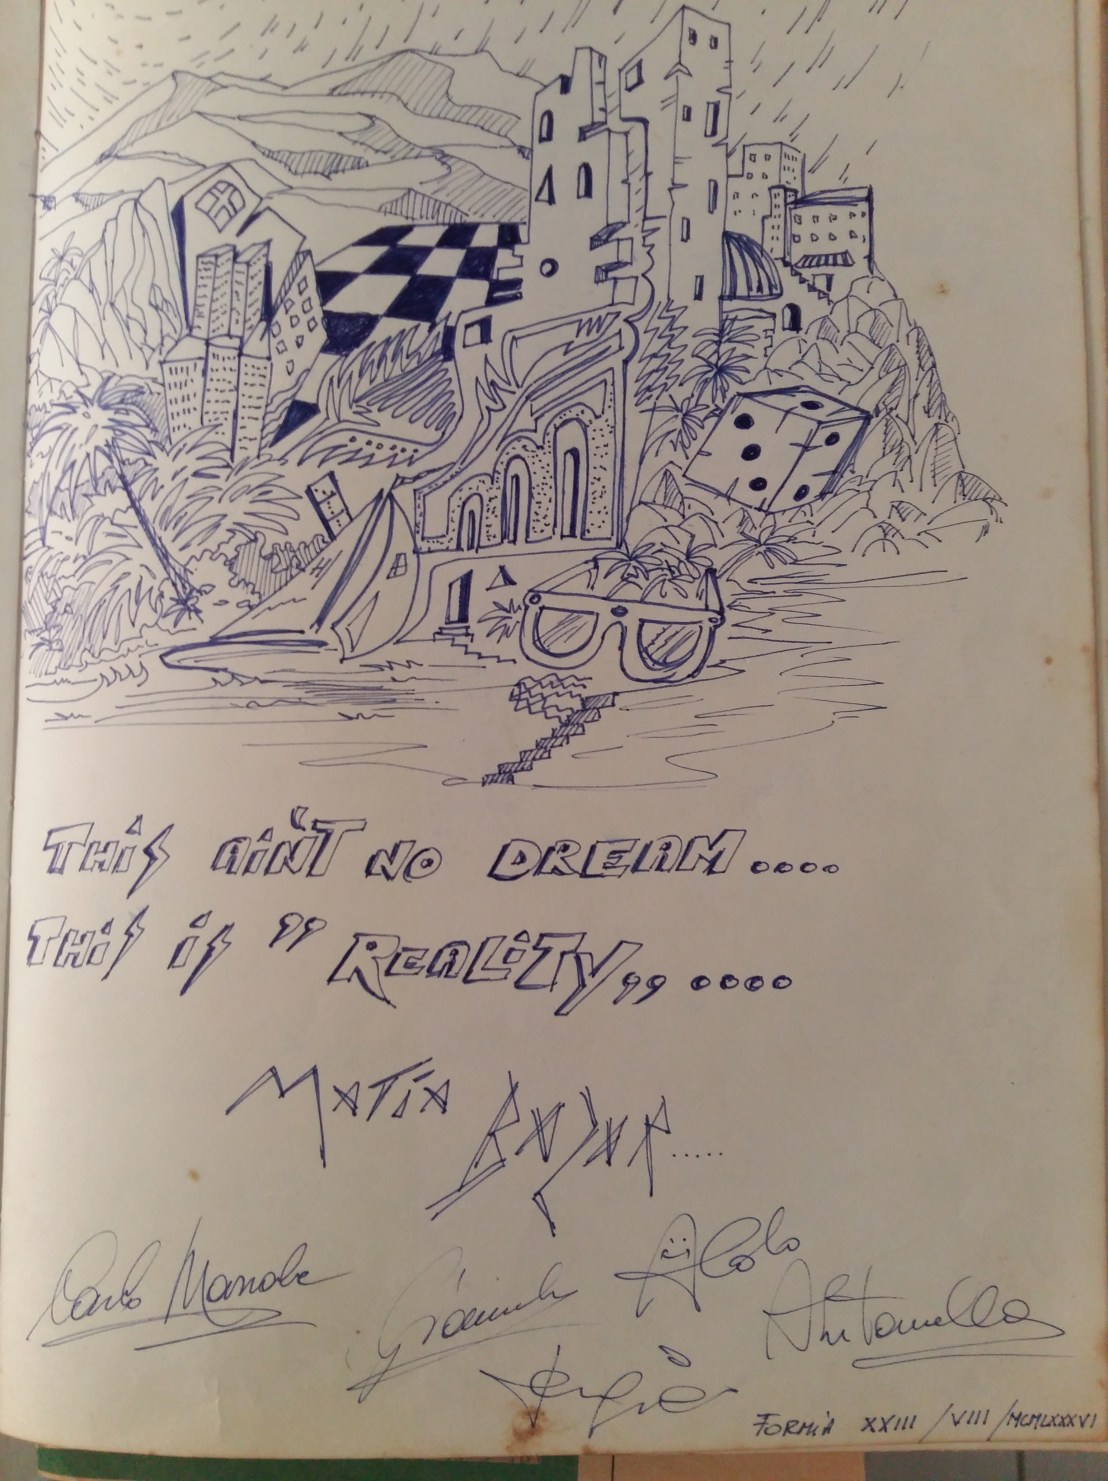 THIS AIN'T NO DREAM....
THIS IS "REALITY,, ....
MATIA
BAZAR.....
Carlo Marrale
Giancarlo
Aldo
Antonella
Sergio
FORMIA XXIII / VIII / MCMLXXXVI